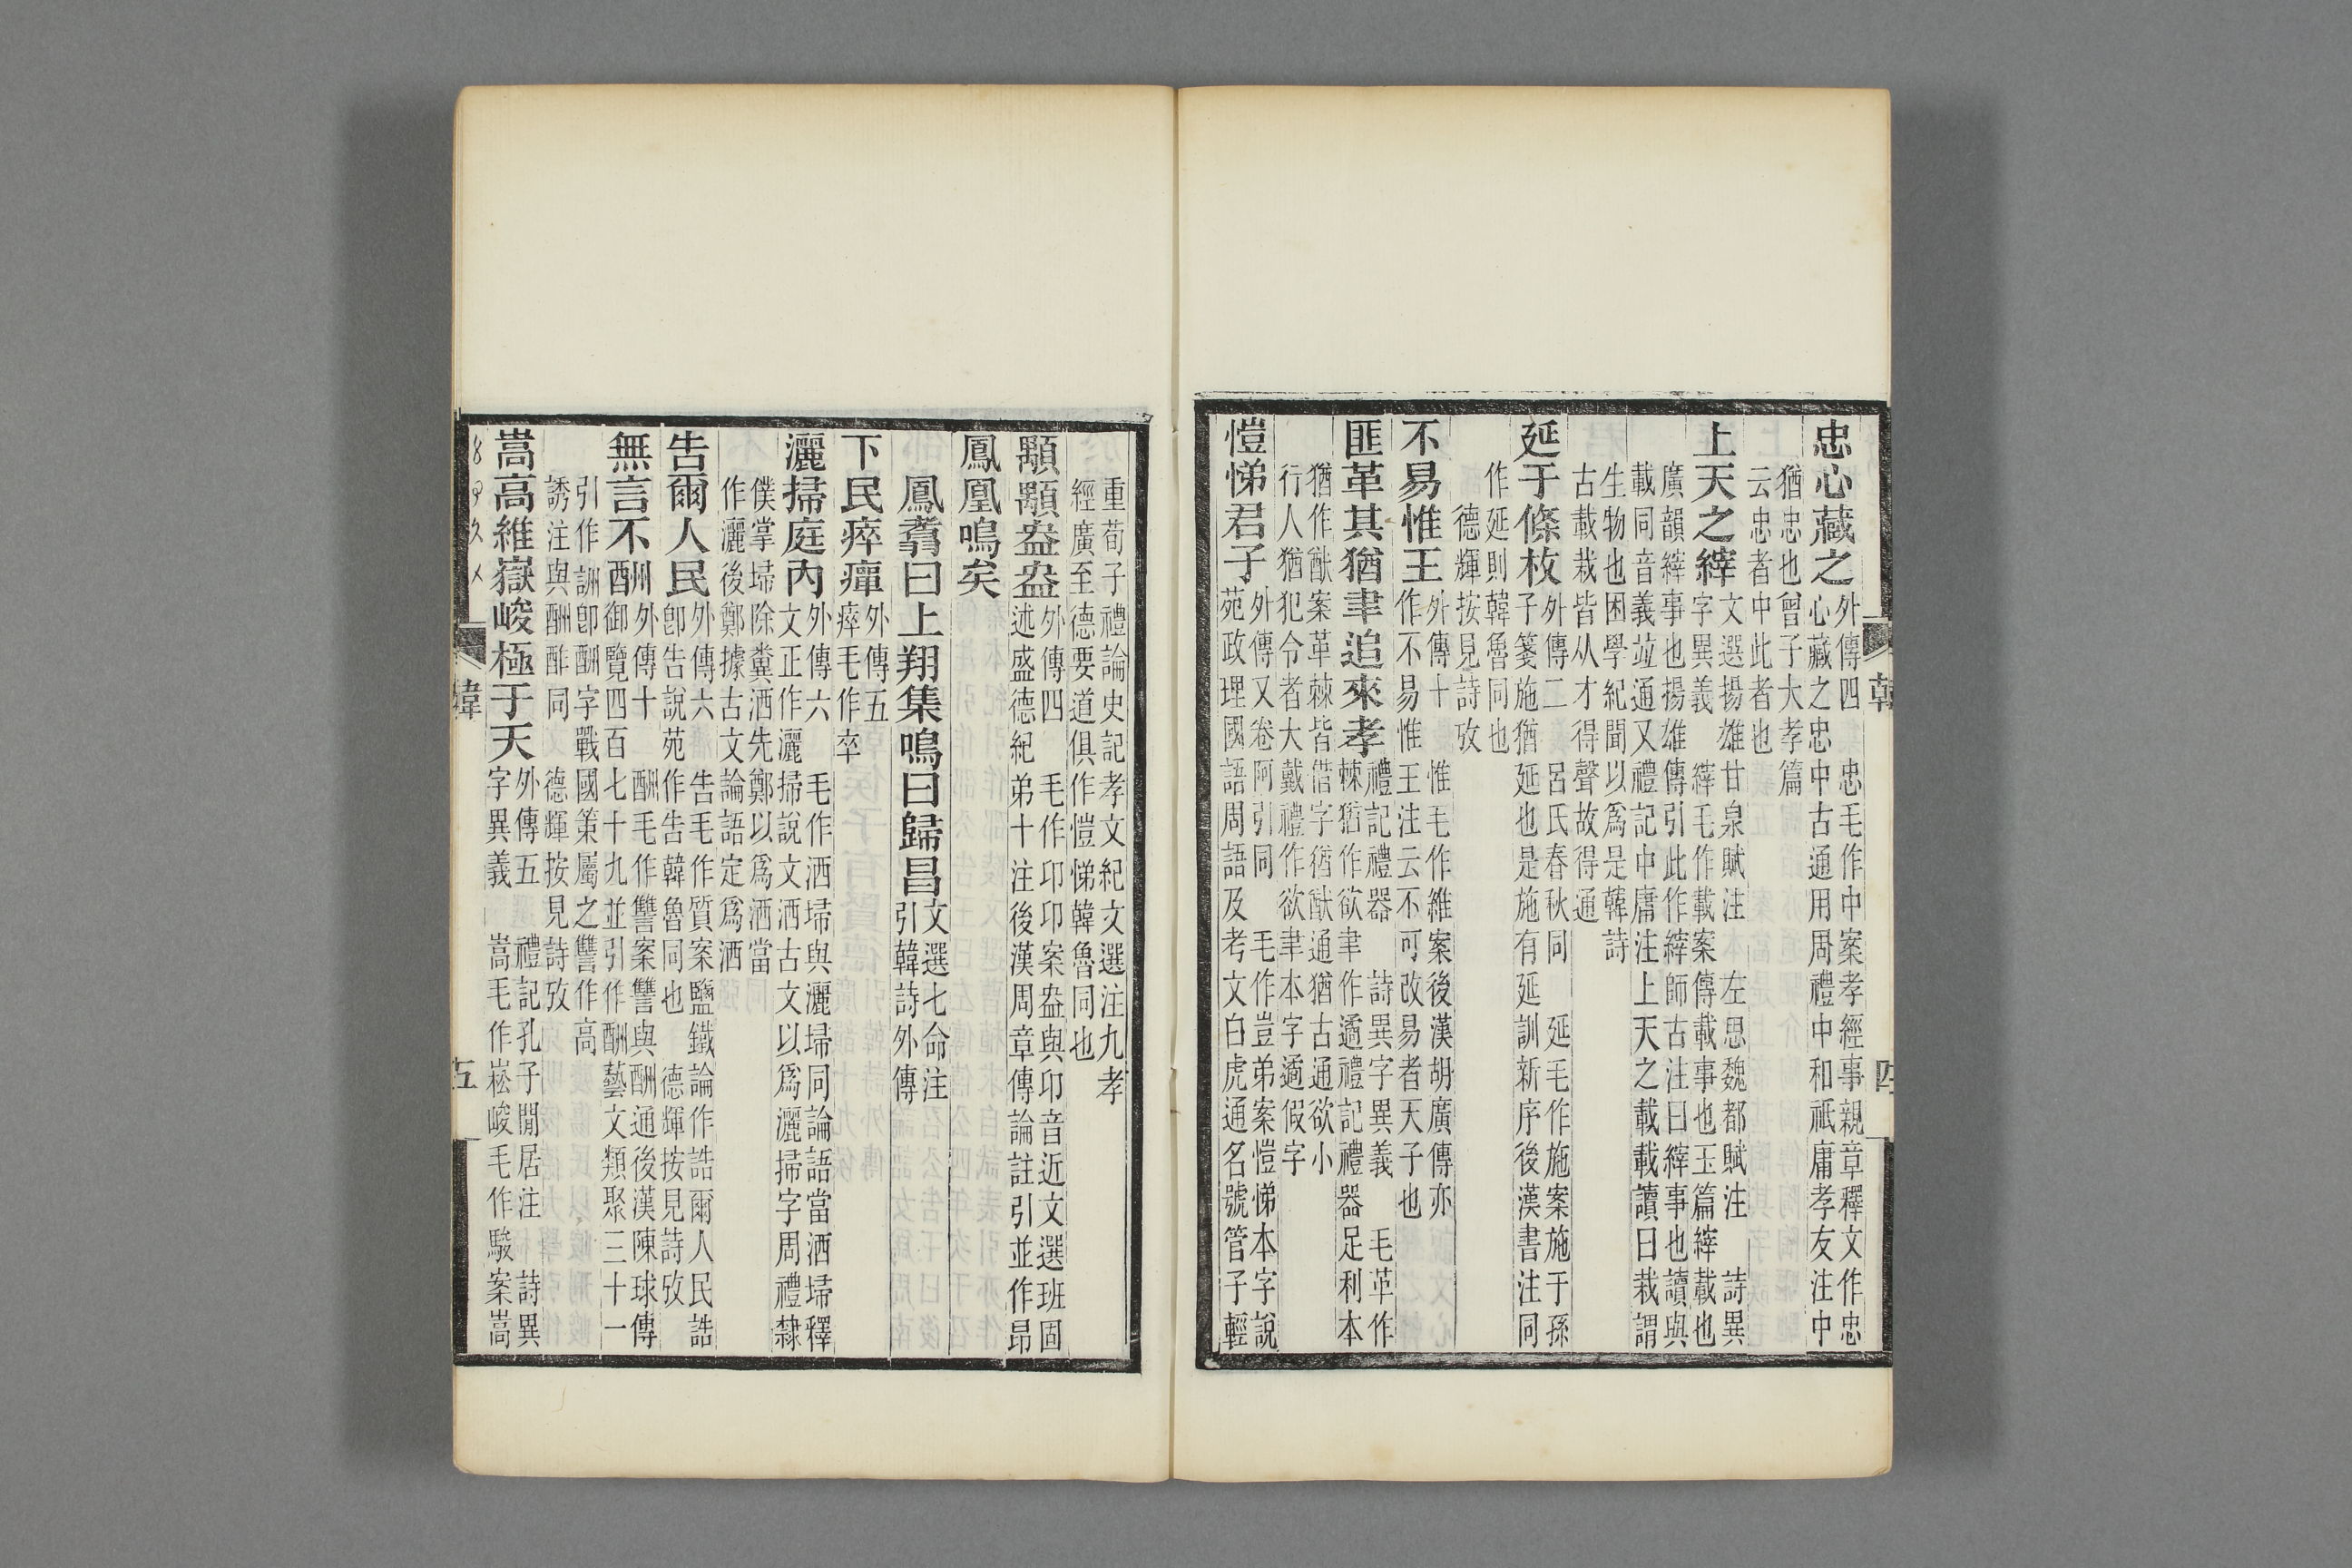 忠心藏之外傳四　忠毛作中案孝經事親章釋文作忠
心藏之忠中古通用周禮中和祗庸孝友注中
猶忠也曾子大孝篇
云忠者中此者也
上天之縡文選揚雄甘泉賦注　左思魏都賦注　詩異
字異義　縡毛作載案傳載事也玉篇縡載也
廣韻縡事也揚雄傳引此作縡師古注曰縡事也讀與
載同音義竝通又禮記中庸注上天之載載讀曰栽謂
生物也困學紀聞以爲是韓詩
古載栽皆从才得聲故得通
延于條枚外傳二　呂氏春秋同　延毛作施案施于孫
子箋施猶延也是施有延訓新序後漢書注同
作延則韓魯同也
德輝按見詩攷
不易惟王外傳十　惟毛作維案後漢胡廣傳亦
作不易惟王注云不可改易者天子也
匪革其猶聿追來孝禮記禮器　詩異字異義　毛革作
棘猶作欲聿作遹禮記禮器足利本
猶作猷案革棘皆偕字猶猷通猶古通欲小
行人猶犯令者大戴禮作欲聿本字遹假字
愷悌君子外傳又卷阿引同　毛作豈弟案愷悌本字說
苑政理國語周語及考文白虎通名號管子輕
重荀子禮論史記孝文紀文選注九孝
經廣至德要道俱作愷悌韓魯同也
顒顒盎盎外傳四　毛作卬卬案盎與卬音近文選班固
述盛德紀弟十注後漢周章傳論註引並作昂
鳳凰鳴矣
鳳翥曰上翔集鳴曰歸昌文選七命注
引韓詩外傳
下民瘁癉外傳五
瘁毛作卒
灑掃庭內外傳六　毛作洒埽與灑埽同論語當洒埽釋
文正作灑掃說文洒古文以爲灑掃字周禮隸
僕掌埽除糞洒先鄭以爲洒當
作灑後鄭據古文論語定爲洒
告爾人民外傳六　告毛作質案鹽鐵論作誥爾人民誥
卽告說苑作告韓魯同也　德輝按見詩攷
無言不酬外傳十　酬毛作讐案讐與酬通後漢陳球傳
御覽四百七十九並引作酬藝文類聚三十一
引作詶卽酬字戰國策屬之讐作高
誘注與酬酢同　德輝按見詩攷
嵩高維嶽峻極于天外傳五　禮記孔子閒居注　詩異
字異義　嵩毛作崧峻毛作駿案嵩
五
四